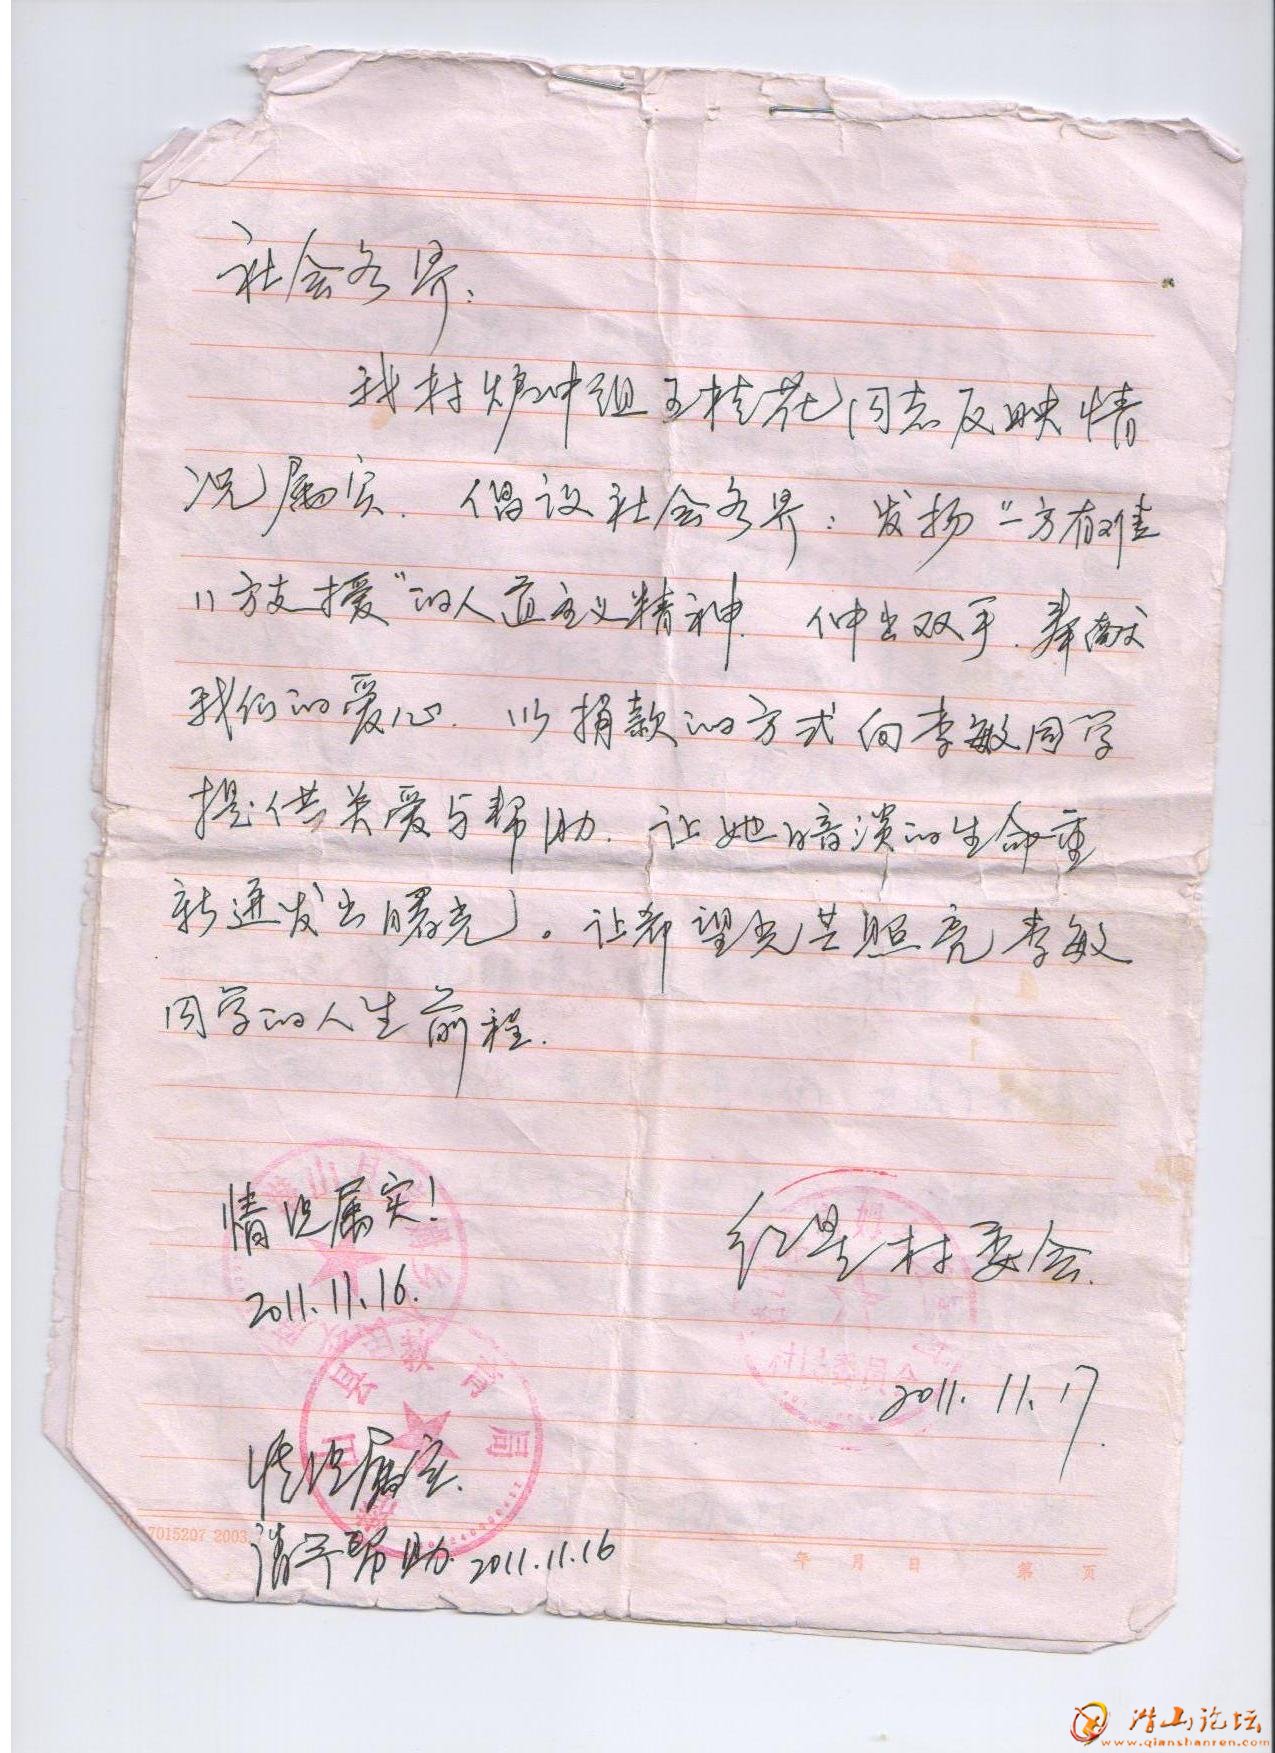 社会各界：
我村炉冲组王桂花同志反映情
况属实. 倡议社会各界：发扬“一方有难
八方支援”的人道主义精神. 伸出双手. 奉献
我们的爱心. 以捐款的方式向李敏同学
提供关爱与帮助. 让她暗淡的生命重
新迸发出曙光。让希望光芒照亮李敏
同学的人生前程.
情况属实！
2011.11.16.
红星村委会.
2011.11.17.
县教育局
情况属实.
请予帮助. 2011.11.16
7015207 2003.
年 月 日 第 页
潜山论坛
www.qianshanren.com